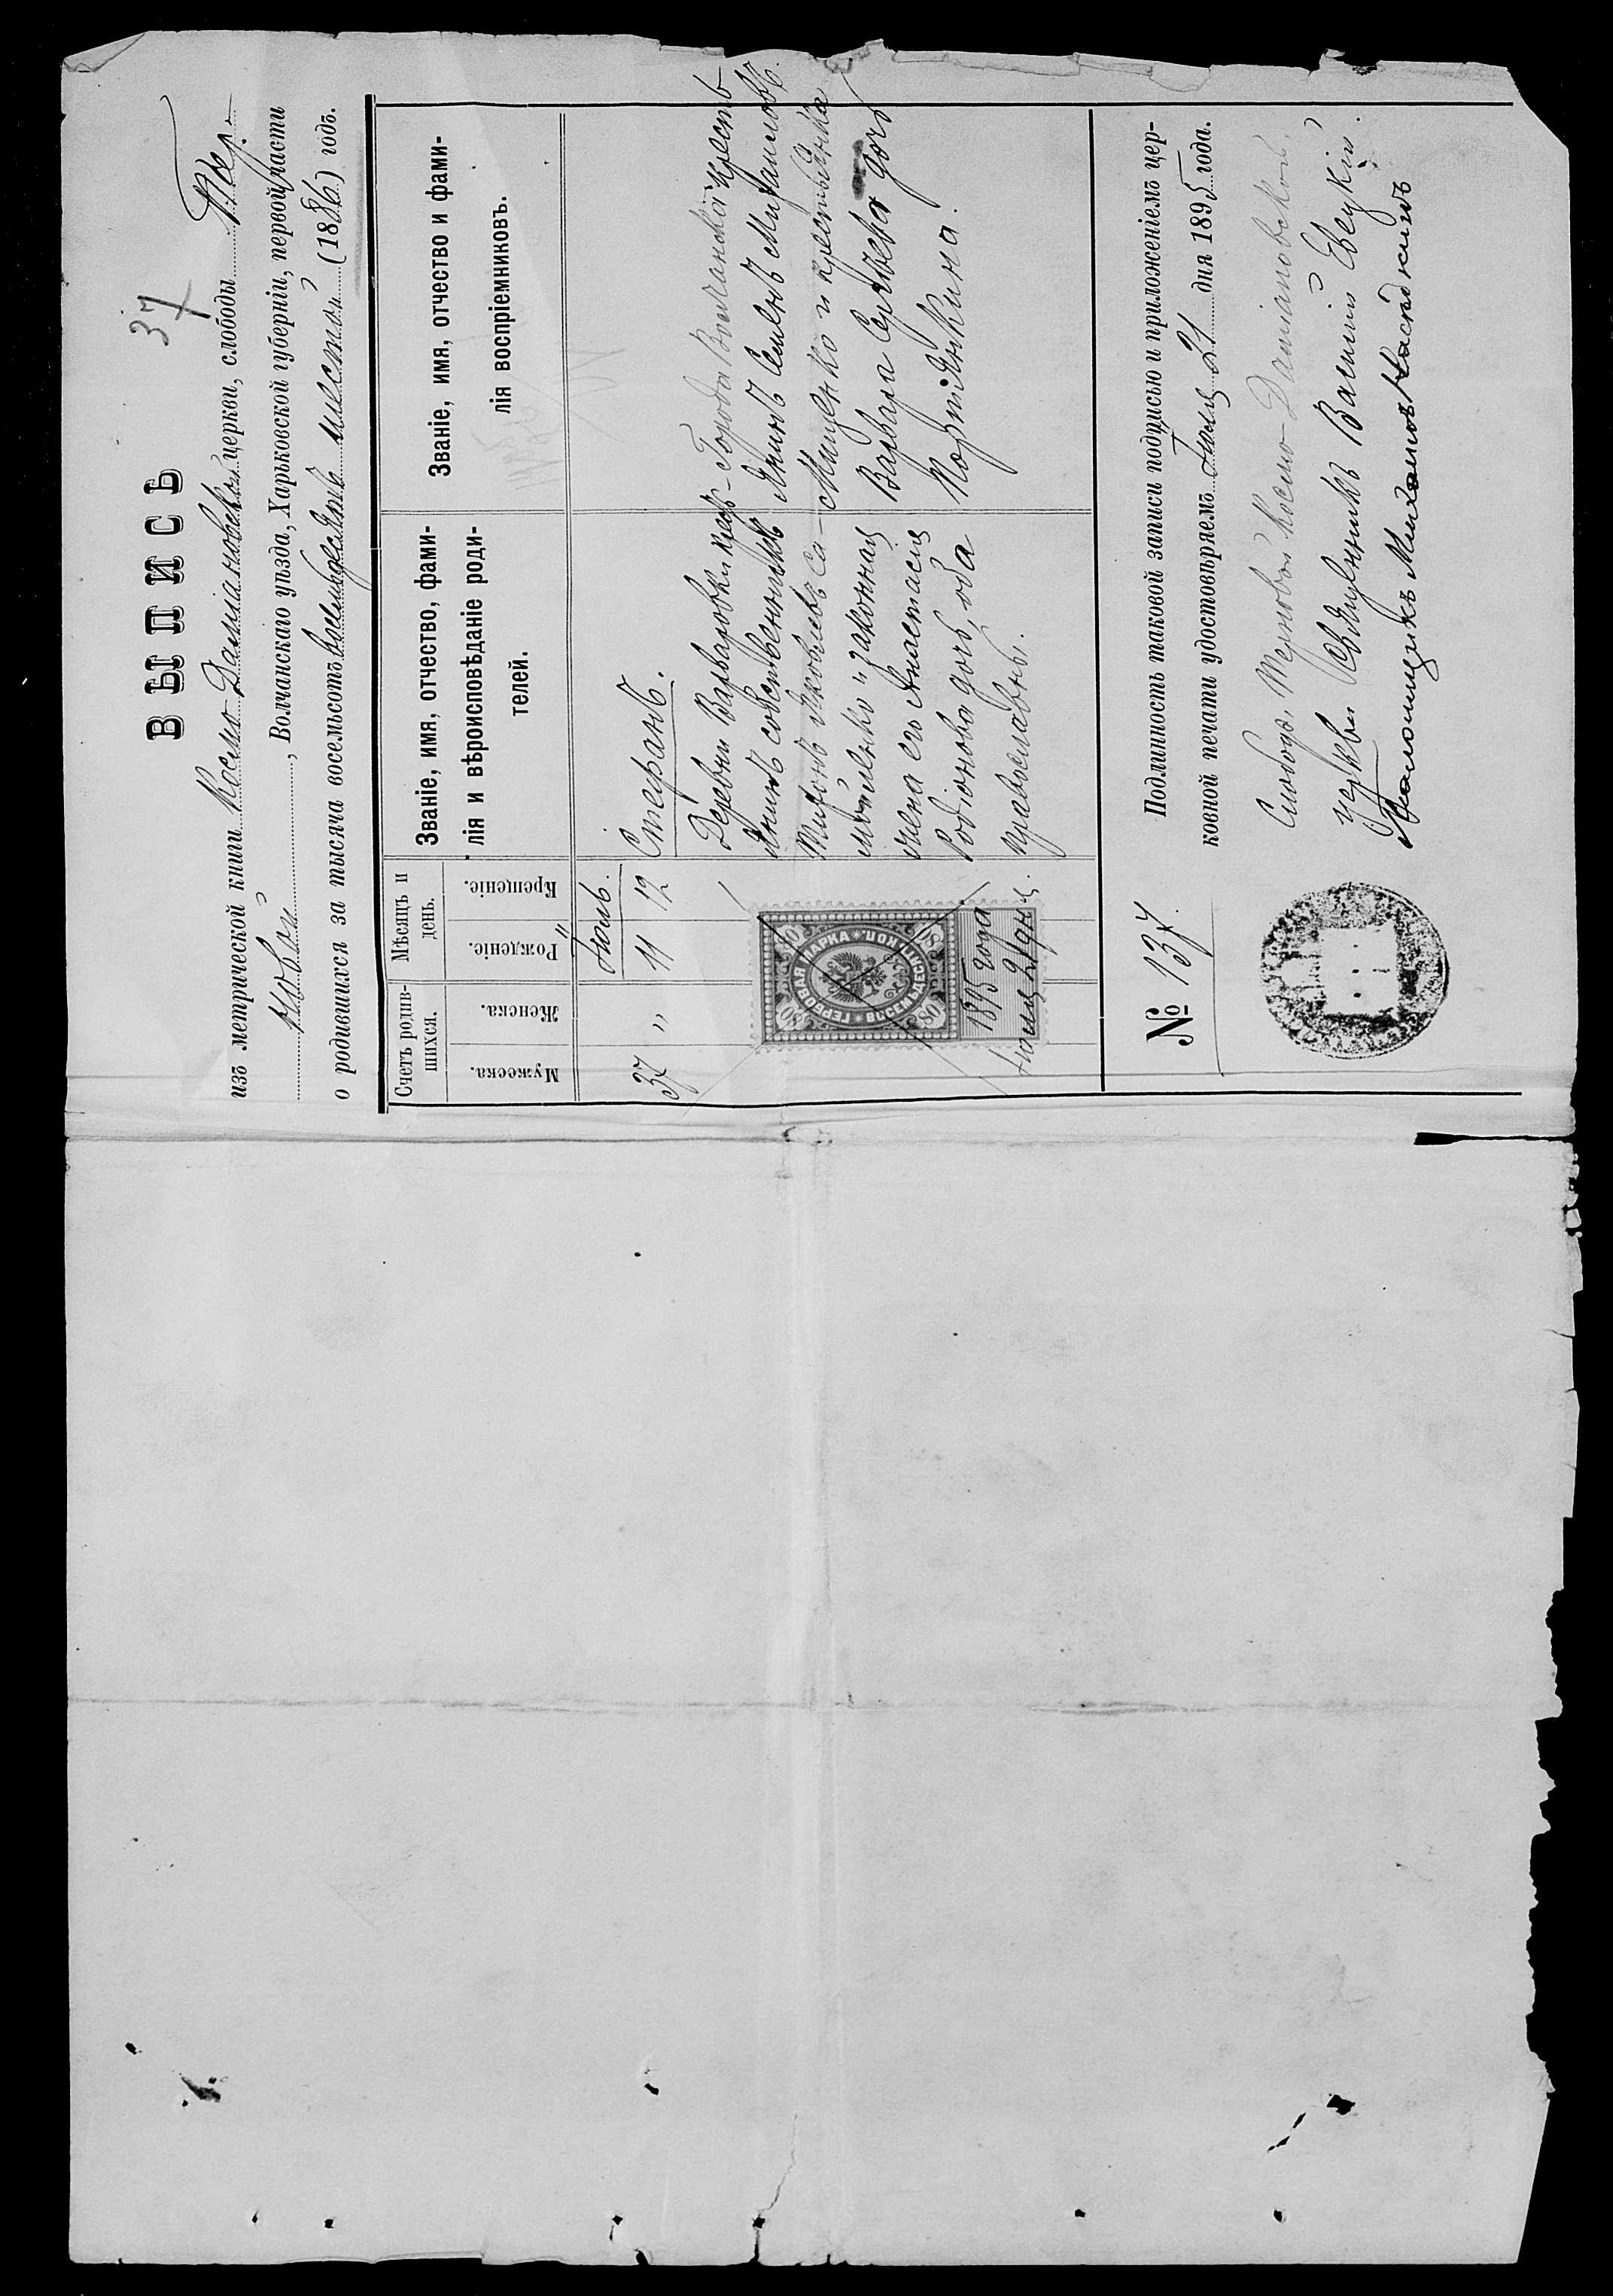 37
ВЫПИСЬ
изъ метрической книги Космо-Даміановской церкви, слободы Тер-
новой, Волчанскаго уѣзда, Харьковской губерніи, первой части
о родившихся за тысяча восемьсотъ восемьдесятъ шестой (1886) годъ.
Счетъ родив-
шихся.
Мужеска.
Женска.
Мѣсяцъ и
день.
Рожденіе.
Крещеніе.
Званіе, имя, отчество, фами-
лія и вѣроисповѣданіе роди-
телей.
Званіе, имя, отчество и фами-
лія воспріемниковъ.
Іюль.
37 " 11 12
Стефанъ.
Деревни Варваровки крест-
янинъ собственникъ
Тихонъ Яковлевъ Са-
мойленко и законная
жена его Анастасія
Родіонова дочь, оба
православны.
Города Волчанска крестъ
янинъ Семенъ Михаиловъ
Мищенко и крестьянка
Варвара Сергѣева дочь
ГЕРБОВАЯ МАРКА ВОСЕМЬДЕСЯТЪ КОП.
80 80 80 80
1895 года
Іюля 21 дня.
№ 137.
Подлинность таковой записи подписью и приложеніемъ цер-
ковной печати удостовѣряемъ Іюля 21 дня 1895 года.
Слободы Терновой Космо-Даміановской
церкви Священникъ Василій
Псаломщикъ Михаилъ